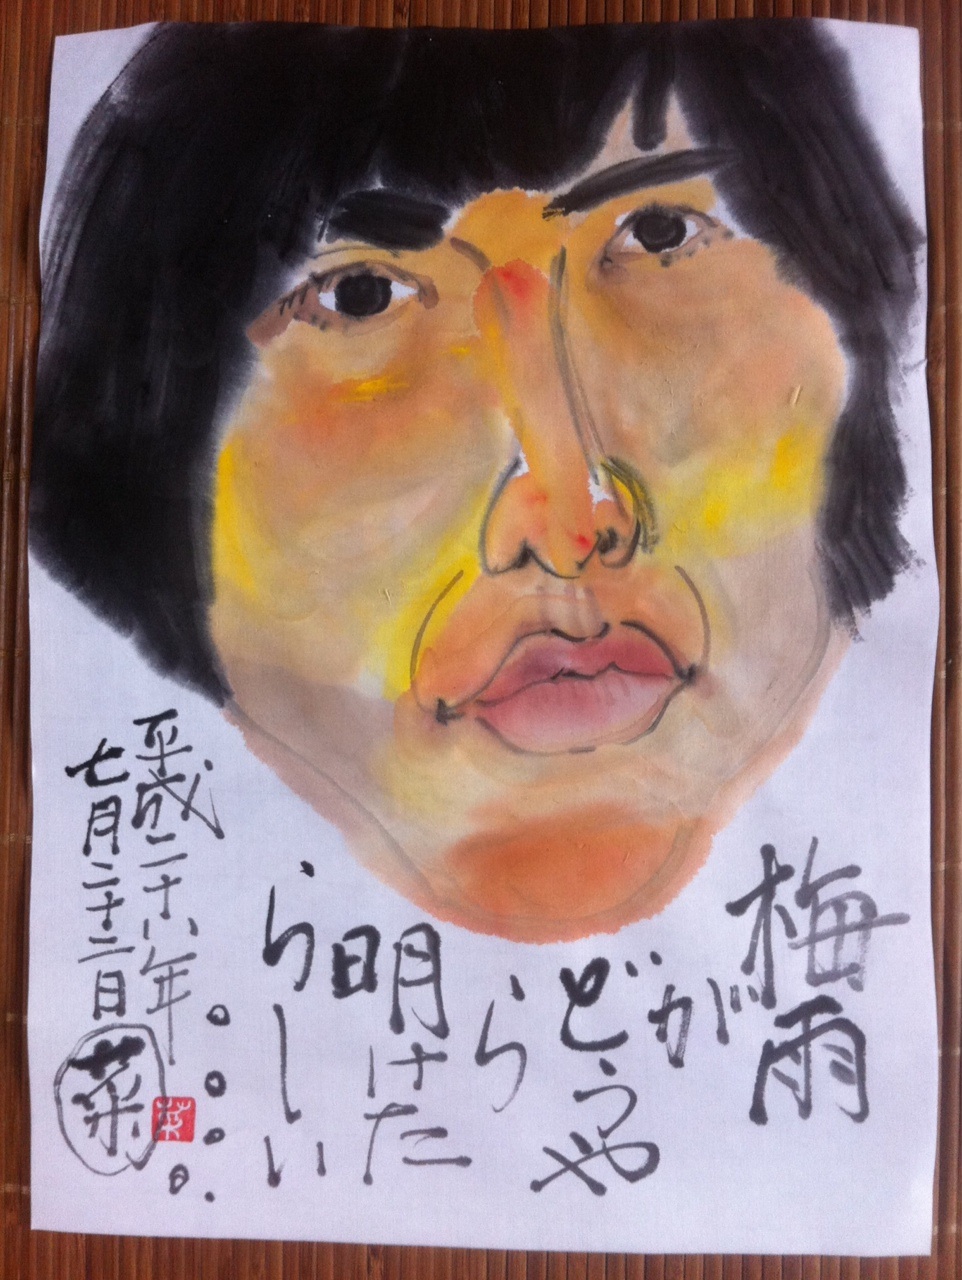 梅雨
が
どうや
ら
明けた
らしい
。。。。。
平成二十六年
七月二十二日
菜
菜